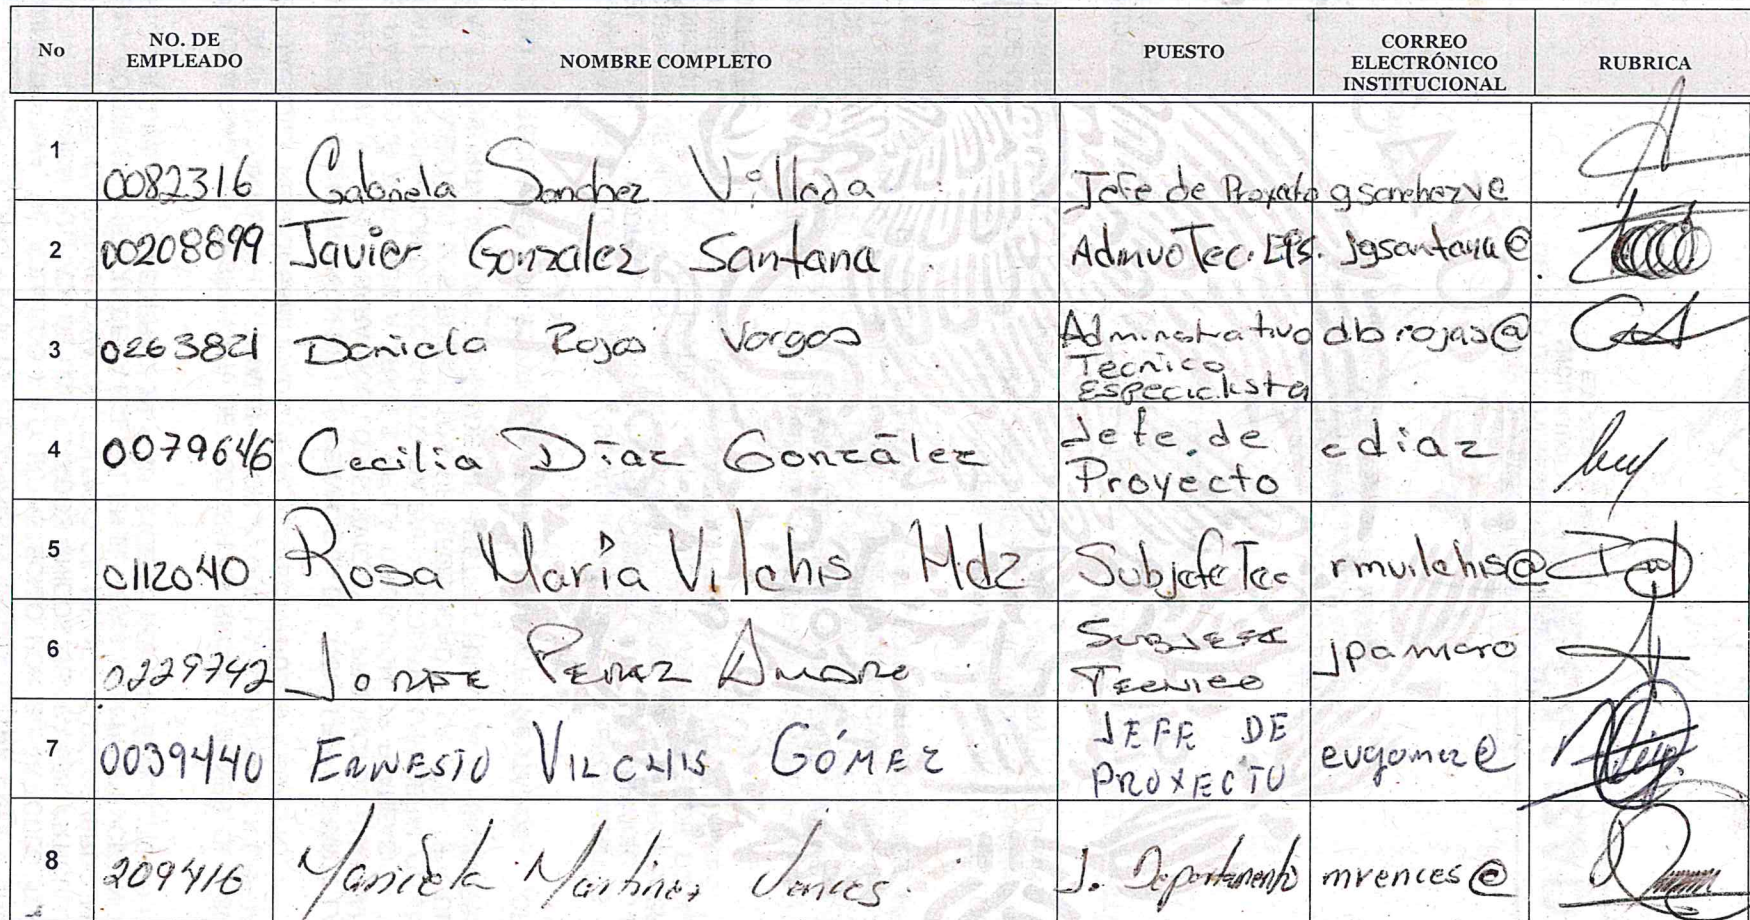 No NO. DE EMPLEADO NOMBRE COMPLETO PUESTO CORREO ELECTRÓNICO INSTITUCIONAL RUBRICA
1 0082316 Gabriela Sanchez Villada Jefe de Proyecto gsanchezv@
2 00208899 Javier Gonzalez Santana Admvo Tec. Jgsantana@
3 0263821 Daniela Rojas Vargas Administrativo dbrojas@
Tecnico
Especialista
4 0079646 Cecilia Díaz González Jefe de cdiaz
Proyecto
5 0112040 Rosa María Vilchis Mdz Subjefe Tec rmvilchis@
6 0229742 Jorge Perez Amaro Subjefe jpamaro
Tecnico
7 0039440 ERNESTO VILCHIS GÓMEZ JEFE DE evgomez@
PROYECTO
8 209416 Martinez Vences J. Departamento mvences@